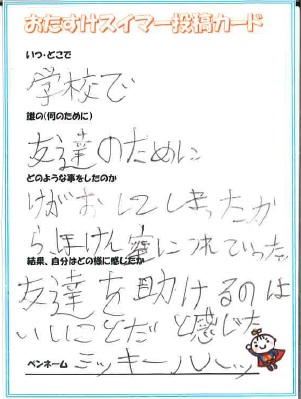 おたすけスイマー投稿カード
いつ・どこで
学校で
誰の(何のために)
友達のために
どのような事をしたのか
けがおしてしまったか
らほけん室につれていった
結果、自分はどの様に感じたか
友達を助けるのは
いいことだと感じた
ペンネーム